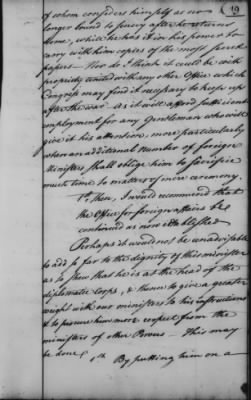 19
of whom considers himself as no
longer bound to secrecy after he returns
home, while he has it in his power to
carry with him copies of the most secret
papers — Nor do I think it could be with
propriety united with any other Office which
Congress may find it necessary to keep up
after the war. As it will afford sufficient
employment for any Gentleman who will
give it his attention, more particularly
when an additional number of foreign
Ministers shall oblige him to sacrifice
much time to matters of mere ceremony.
1st, then, I would recommend that
the Office for foreign affairs be
continued as now established
Perhaps it would not be unadvisable
to add so far to the dignity of this minister
as to shew that he is at the head of the
diplomatic Corps, & thereby to give a greater
weight with our ministers to his instructions
& to procure him more respect from the
ministers of other Powers — This may
be done,
1st By putting him on a